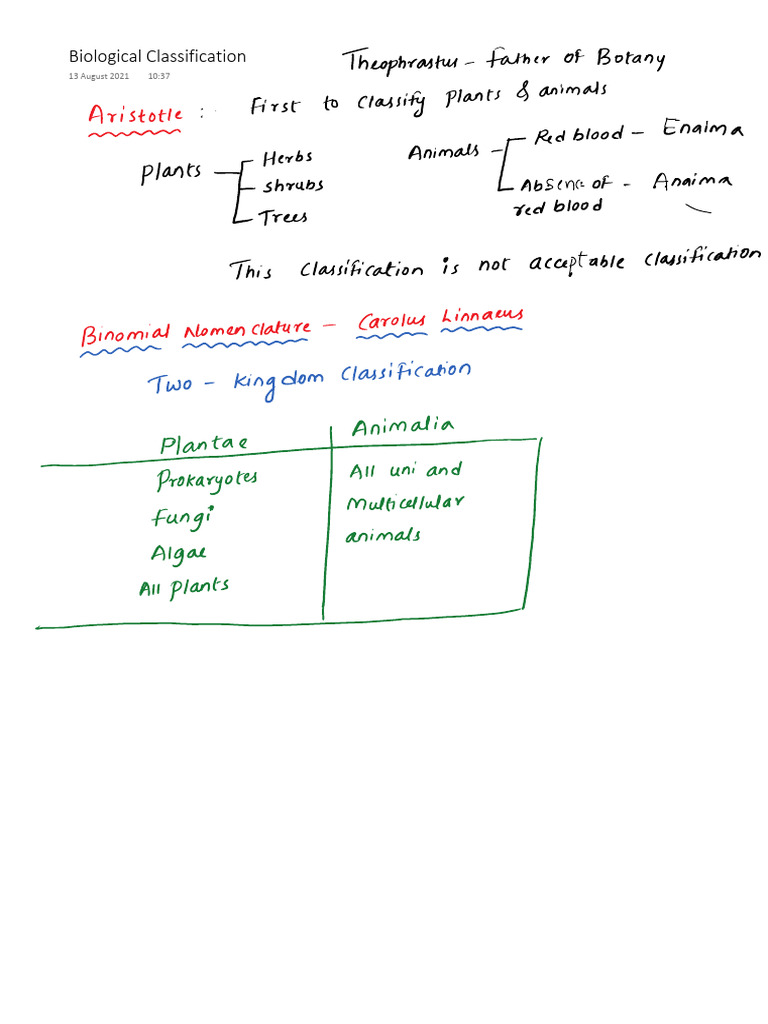 Biological Classification
13 August 2021 10:37
Theophrastus - Father of Botany
Aristotle : First to classify plants & animals
Plants
Herbs
Shrubs
Trees
Animals
Red blood - Enaima
Absence of - Anaima
red blood
This classification is not acceptable classification
Binomial Nomenclature - Carolus Linnaeus
Two - Kingdom classification
Plantae Animalia
Prokaryotes All uni and
Fungi Multicellular
Algae animals
All plants